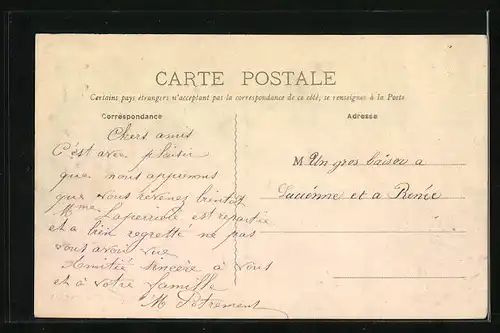 CARTE POSTALE
Certains pays étrangers n'acceptant pas la correspondance de ce côté, se renseigner à la Poste
Correspondance
Chers amis
C'est avec plaisir
que nous apprenons
que vous revenez bientot
Mme Laperiole est repartie
et a bien regretté ne pas
vous avoir vue
Amitié sincère à vous
et à votre famille
M Pétrement
Adresse
M Un gros baiser a
Lucienne et a Renée